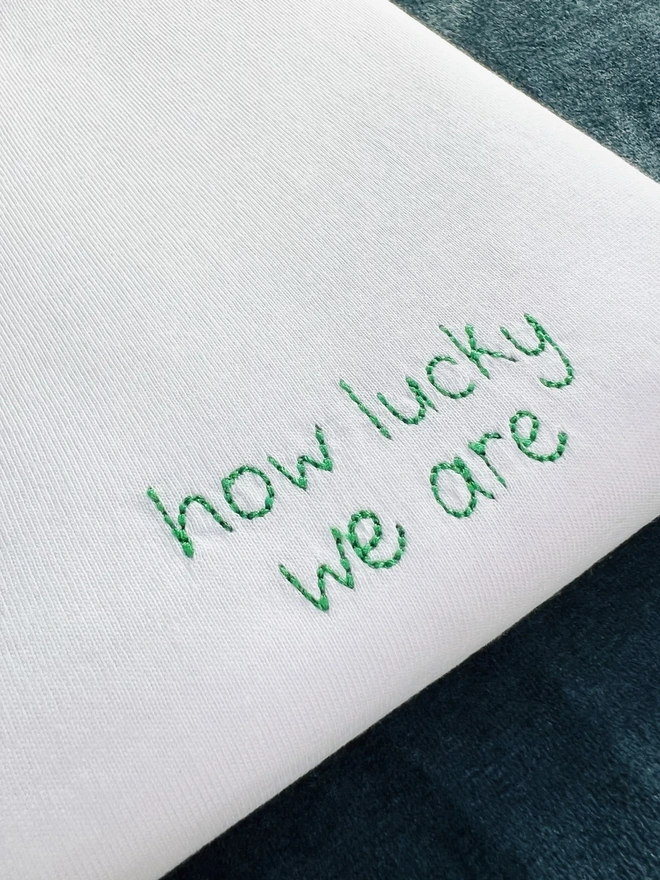 how lucky
we are